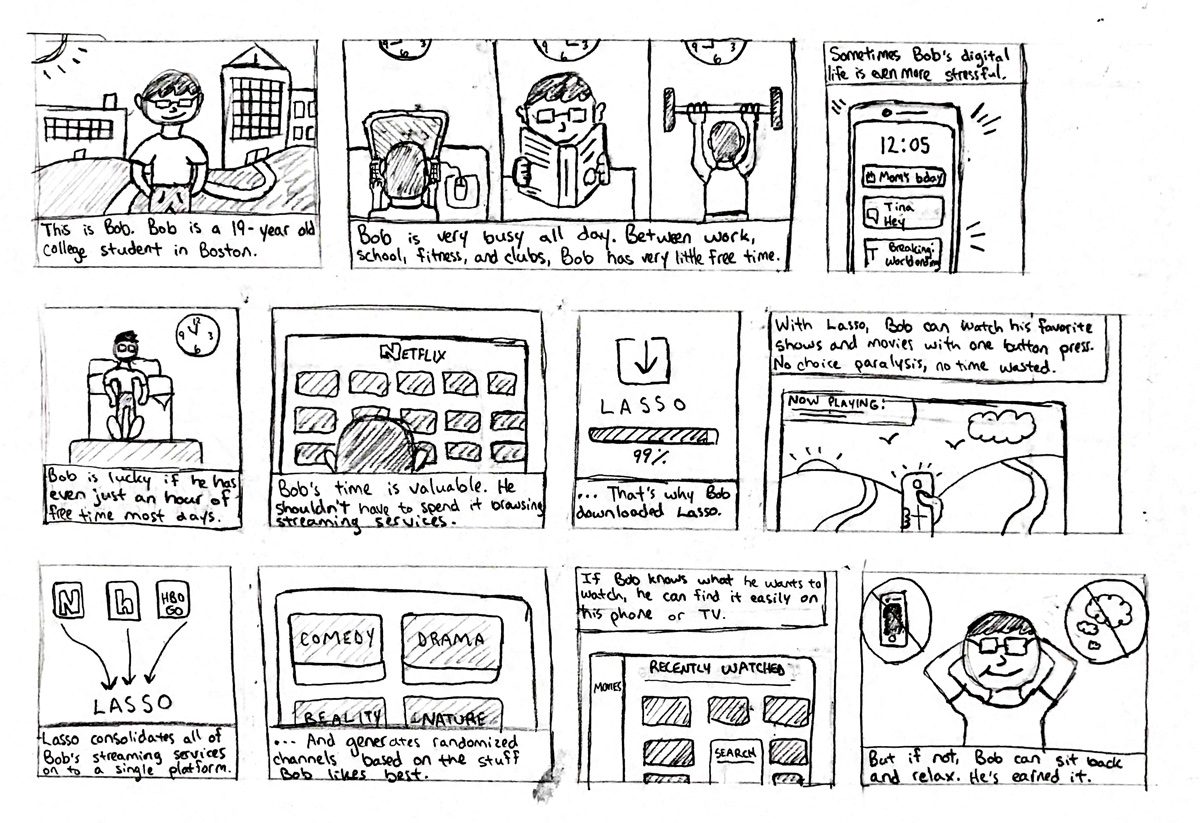 This is Bob. Bob is a 19-year old
college student in Boston.
9 3
6
9 3
6
9 3
6
Bob is very busy all day. Between work,
school, fitness, and clubs, Bob has very little free time.
Sometimes Bob's digital
life is even more stressful.
12:05
Mom's bday
Tina
Hey
T Breaking:
World ending
12
9 3
6
Bob is lucky if he has
even just an hour of
free time most days.
NETFLIX
Bob's time is valuable. He
shouldn't have to spend it browsing
streaming services.
LASSO
99%
... That's why Bob
downloaded Lasso.
With Lasso, Bob can watch his favorite
shows and movies with one button press.
No choice paralysis, no time wasted.
NOW PLAYING:
N h HBO
GO
LASSO
Lasso consolidates all of
Bob's streaming services
on to a single platform.
COMEDY DRAMA
REALITY NATURE
... And generates randomized
channels based on the stuff
Bob likes best.
If Bob knows what he wants to
watch, he can find it easily on
his phone or TV.
RECENTLY WATCHED
MOVIES
SEARCH
But if not, Bob can sit back
and relax. He's earned it.